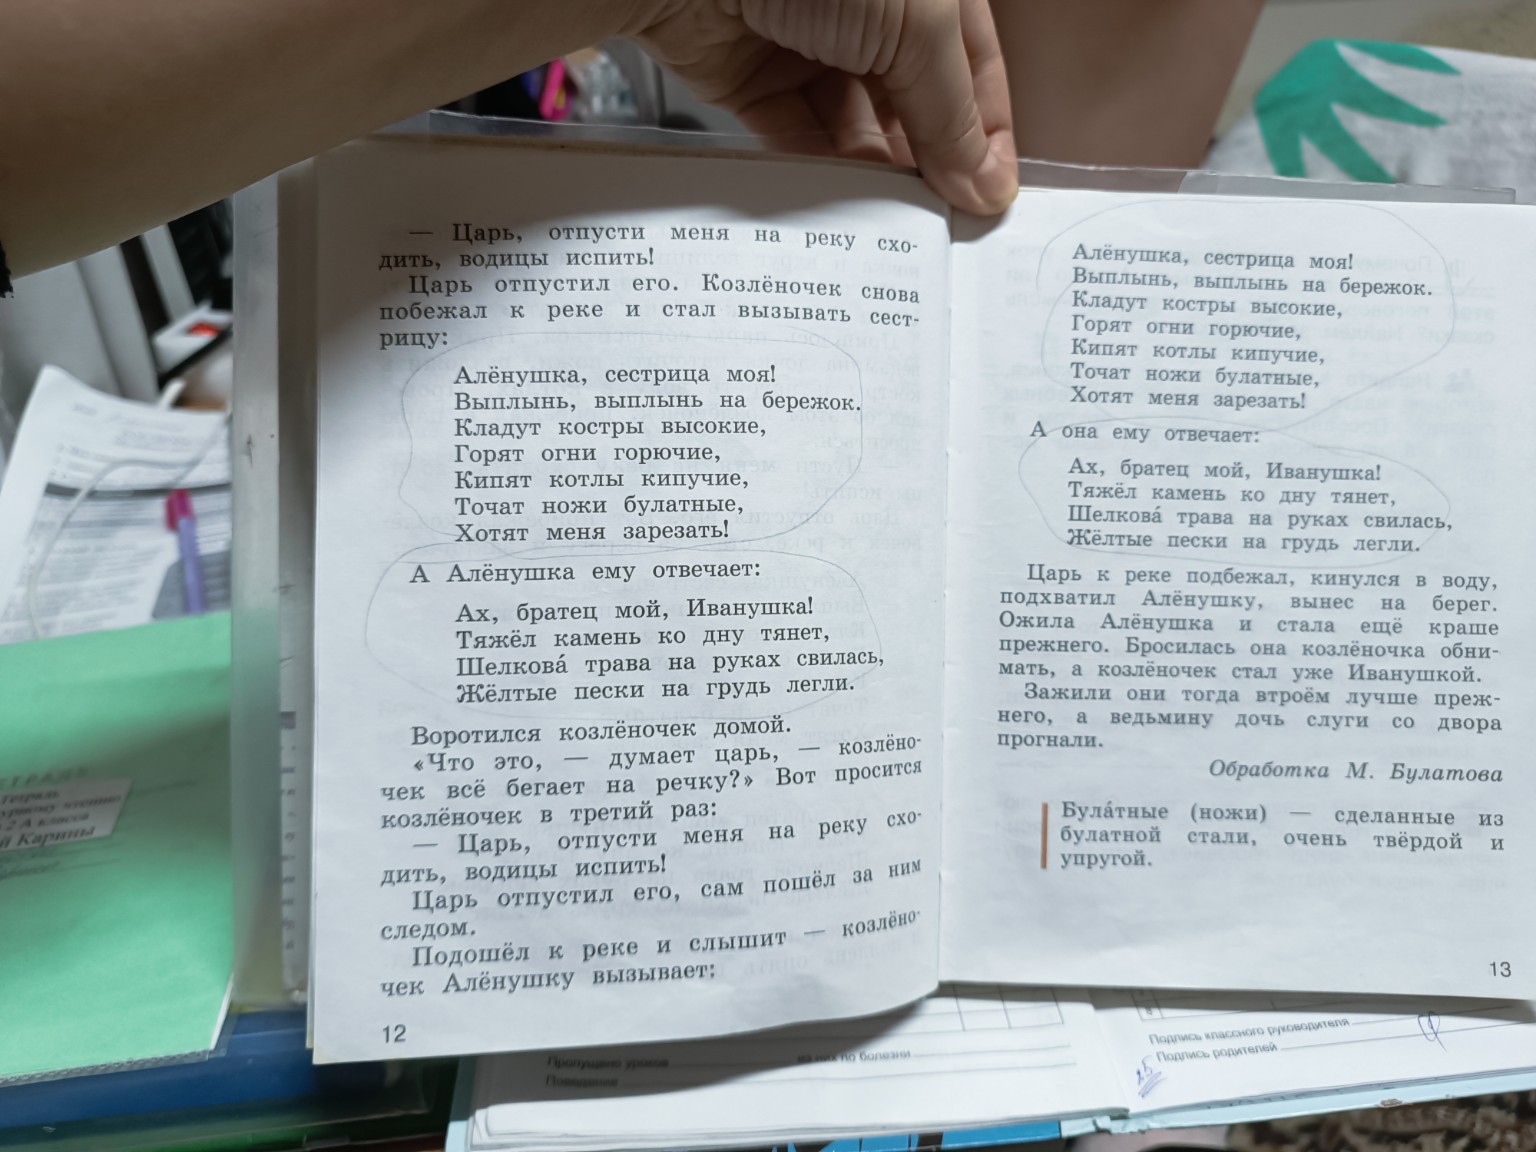 — Царь, отпусти меня на реку схо-
дить, водицы испить!
Царь отпустил его. Козлёночек снова
побежал к реке и стал вызывать сест-
рицу:
Алёнушка, сестрица моя!
Выплынь, выплынь на бережок.
Кладут костры высокие,
Горят огни горючие,
Кипят котлы кипучие,
Точат ножи булатные,
Хотят меня зарезать!
А Алёнушка ему отвечает:
Ах, братец мой, Иванушка!
Тяжёл камень ко дну тянет,
Шелкова́ трава на руках свилась,
Жёлтые пески на грудь легли.
Воротился козлёночек домой.
«Что это, — думает царь, — козлёно-
чек всё бегает на речку?» Вот просится
козлёночек в третий раз:
— Царь, отпусти меня на реку схо-
дить, водицы испить!
Царь отпустил его, сам пошёл за ним
следом.
Подошёл к реке и слышит — козлёно-
чек Алёнушку вызывает:
12
Алёнушка, сестрица моя!
Выплынь, выплынь на бережок.
Кладут костры высокие,
Горят огни горючие,
Кипят котлы кипучие,
Точат ножи булатные,
Хотят меня зарезать!
А она ему отвечает:
Ах, братец мой, Иванушка!
Тяжёл камень ко дну тянет,
Шелкова́ трава на руках свилась,
Жёлтые пески на грудь легли.
Царь к реке подбежал, кинулся в воду,
подхватил Алёнушку, вынес на берег.
Ожила Алёнушка и стала ещё краше
прежнего. Бросилась она козлёночка обни-
мать, а козлёночек стал уже Иванушкой.
Зажили они тогда втроём лучше преж-
него, а ведьмину дочь слуги со двора
прогнали.
Обработка М. Булатова
Була́тные (ножи) — сделанные из
булатной стали, очень твёрдой и
упругой.
13
2 А класса
й Карины
Пропущено уроков из них по болезни
Поведение
Подпись классного руководителя
Подпись родителей